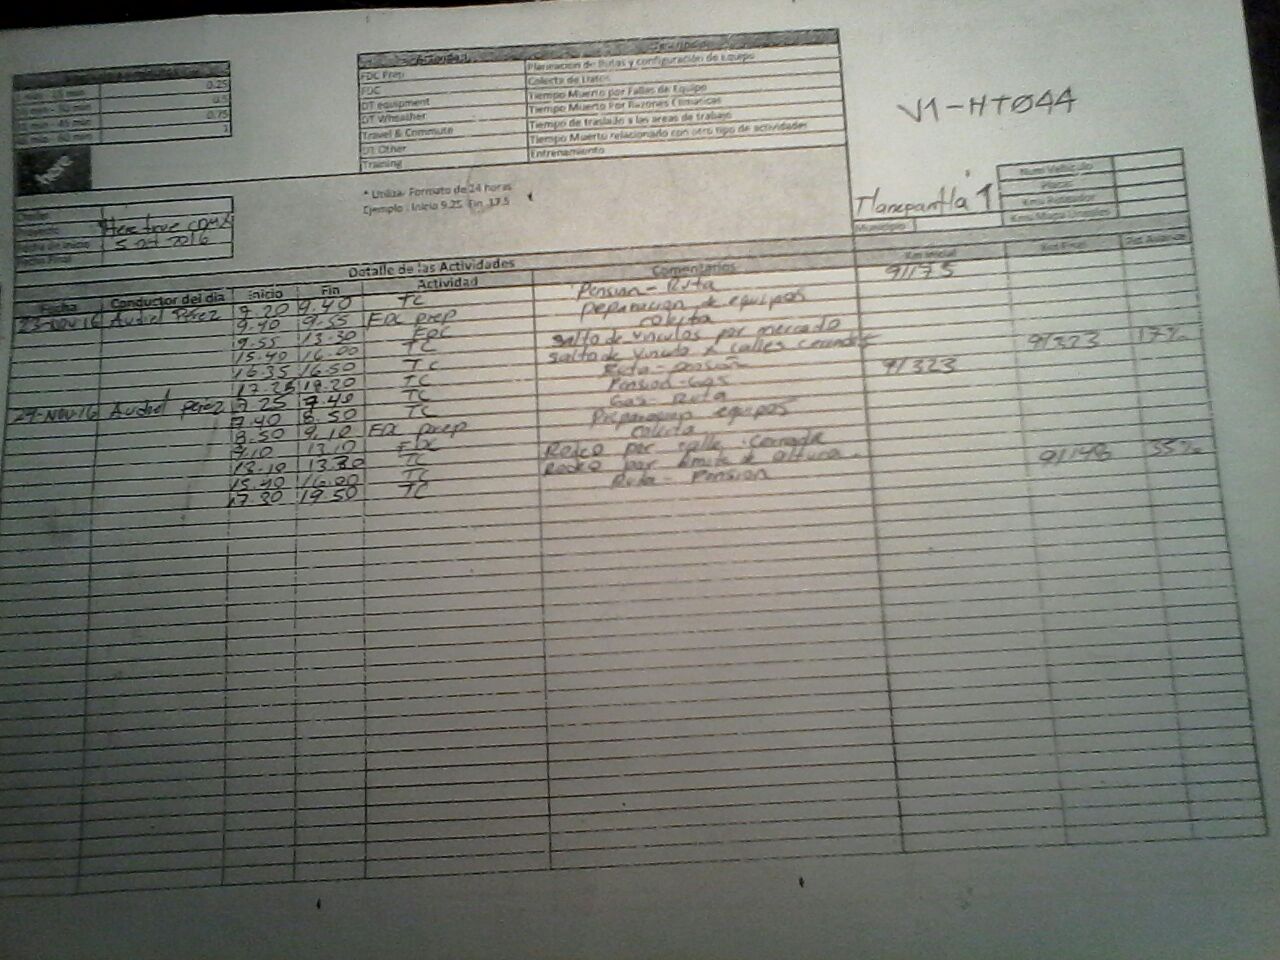 0.25
0.5
0.75
1
Actividad
FDC Prep Planeacion de Rutas y configuración de Equipo
FDC Colecta de Datos
DT equipment Tiempo Muerto por Fallas de Equipo
DT Wheather Tiempo Muerto Por Razones Climaticas
Travel & Commute Tiempo de traslado a las areas de trabajo
DT Other Tiempo Muerto relacionado con otro tipo de actividades
Training Entrenamiento
V1-HT044
* Utiliza Formato de 24 horas
Ejemplo : Inicio 9.25 Fin 17.5
Num Vehiculo
Placas
Tlanepantla 1
Municipio
Here true CDMX
5 oct 2016
Detalle de las Actividades
Fecha Conductor del dia Inicio Fin Actividad Comentarios Km Inicial Km Final
23-NOV-16 Audiel Pérez 9.20 9.40 TC Pension - Ruta 91175
9.40 9.55 FDC prep preparacion de equipos
9.55 13.30 FDC colecta
15.40 16.00 TC salto de vinculos por mercado
16.35 16.50 TC salto de vinculo x calles cerradas 91323 17%
17.25 18.20 TC Ruta - pensión
24-NOV-16 Audiel Perez 7.25 7.40 TC Pension - Gas 91323
7.40 8.50 TC Gas - Ruta
8.50 9.10 FDC prep Preparacion equipos
9.10 13.10 FDC colecta
13.10 13.30 TC Rodeo por calle cerrada
15.40 16.00 TC Rodeo por limite de altura 55%
17.30 19.50 TC Ruta - Pension